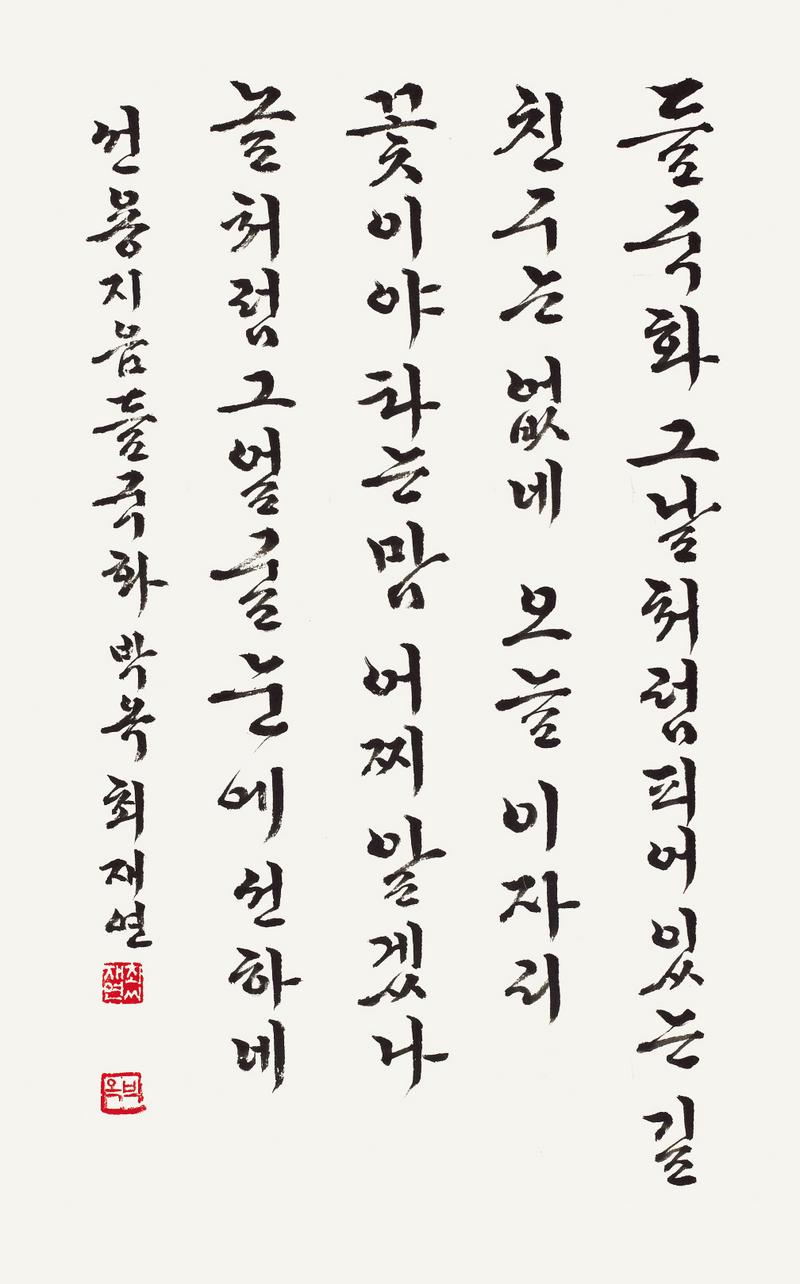 들국화 그날처럼 피어있는 길
친구는 없네 오늘 이자리
꽃이야 타는 맘 어찌 알겠나
늘처럼 그 얼굴 눈에 선하네
지음 들국화 박옥 최재연
박옥